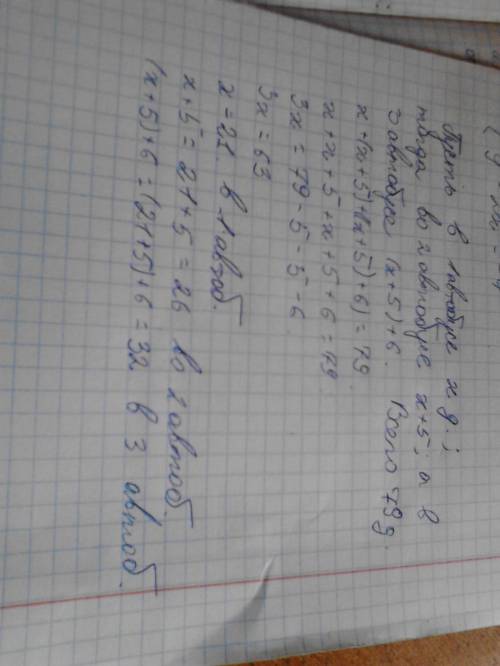 Пусть в 1 автобусе x д.;
тогда во 2 автобусе x+5; а в
3 автобусе (x+5)+6. Всего 79 д.
x+(x+5)+((x+5)+6)=79.
x+x+5+x+5+6=79.
3x=79-5-5-6
3x=63
x=21. в 1 автоб.
x+5=21+5=26 во 2 автоб.
(x+5)+6=(21+5)+6=32 в 3 автоб.